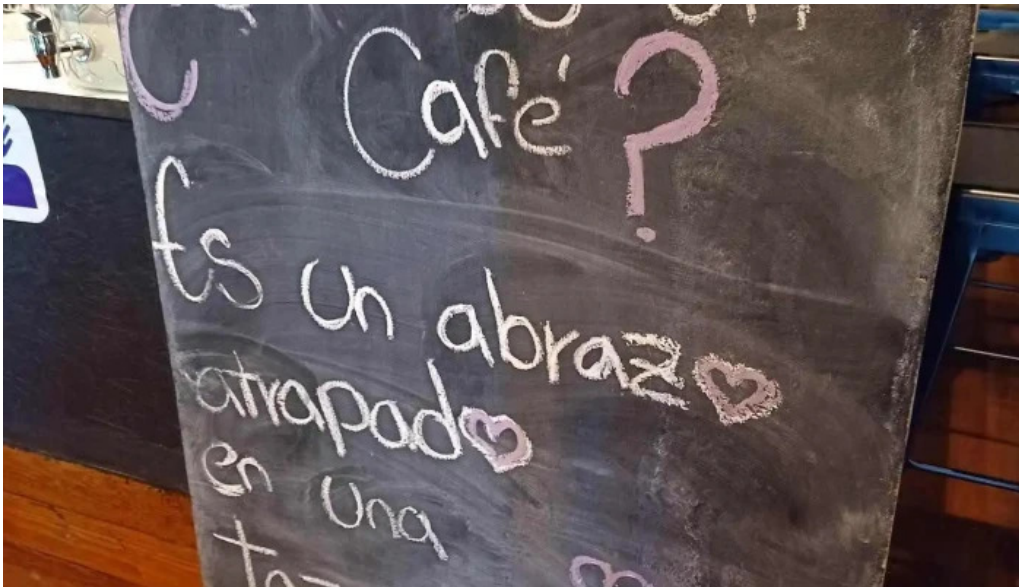 Café?
Es un abrazo
atrapado
en una